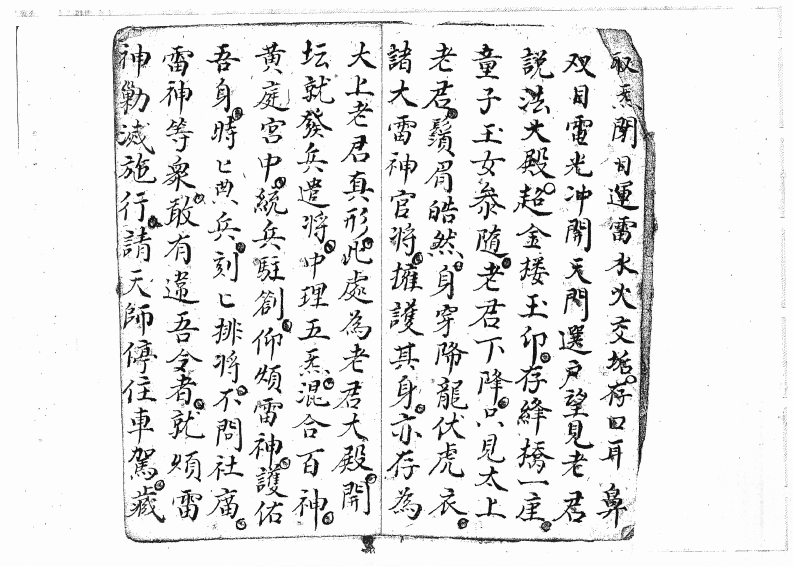 取炁閉目運雷水火交姤存口耳鼻
双目電光冲開天門選户望見老君
說法大殿超金楼玉卯存絳橋一座
童子玉女参随老君下降只見太上
老君鬚眉皓然身穿降龍伏虎衣
諸大雷神官将擁護其身亦存為
大上老君真形此處為老君大殿開
坛就發兵遣将中理五炁混合百神
黄庭宮中統兵駐劄仰煩雷神護佑
吾身時匕典兵刻匕排将不問社庙
雷神等衆敢有違吾令者就煩雷
神勦滅施行請天師停住車駕藏